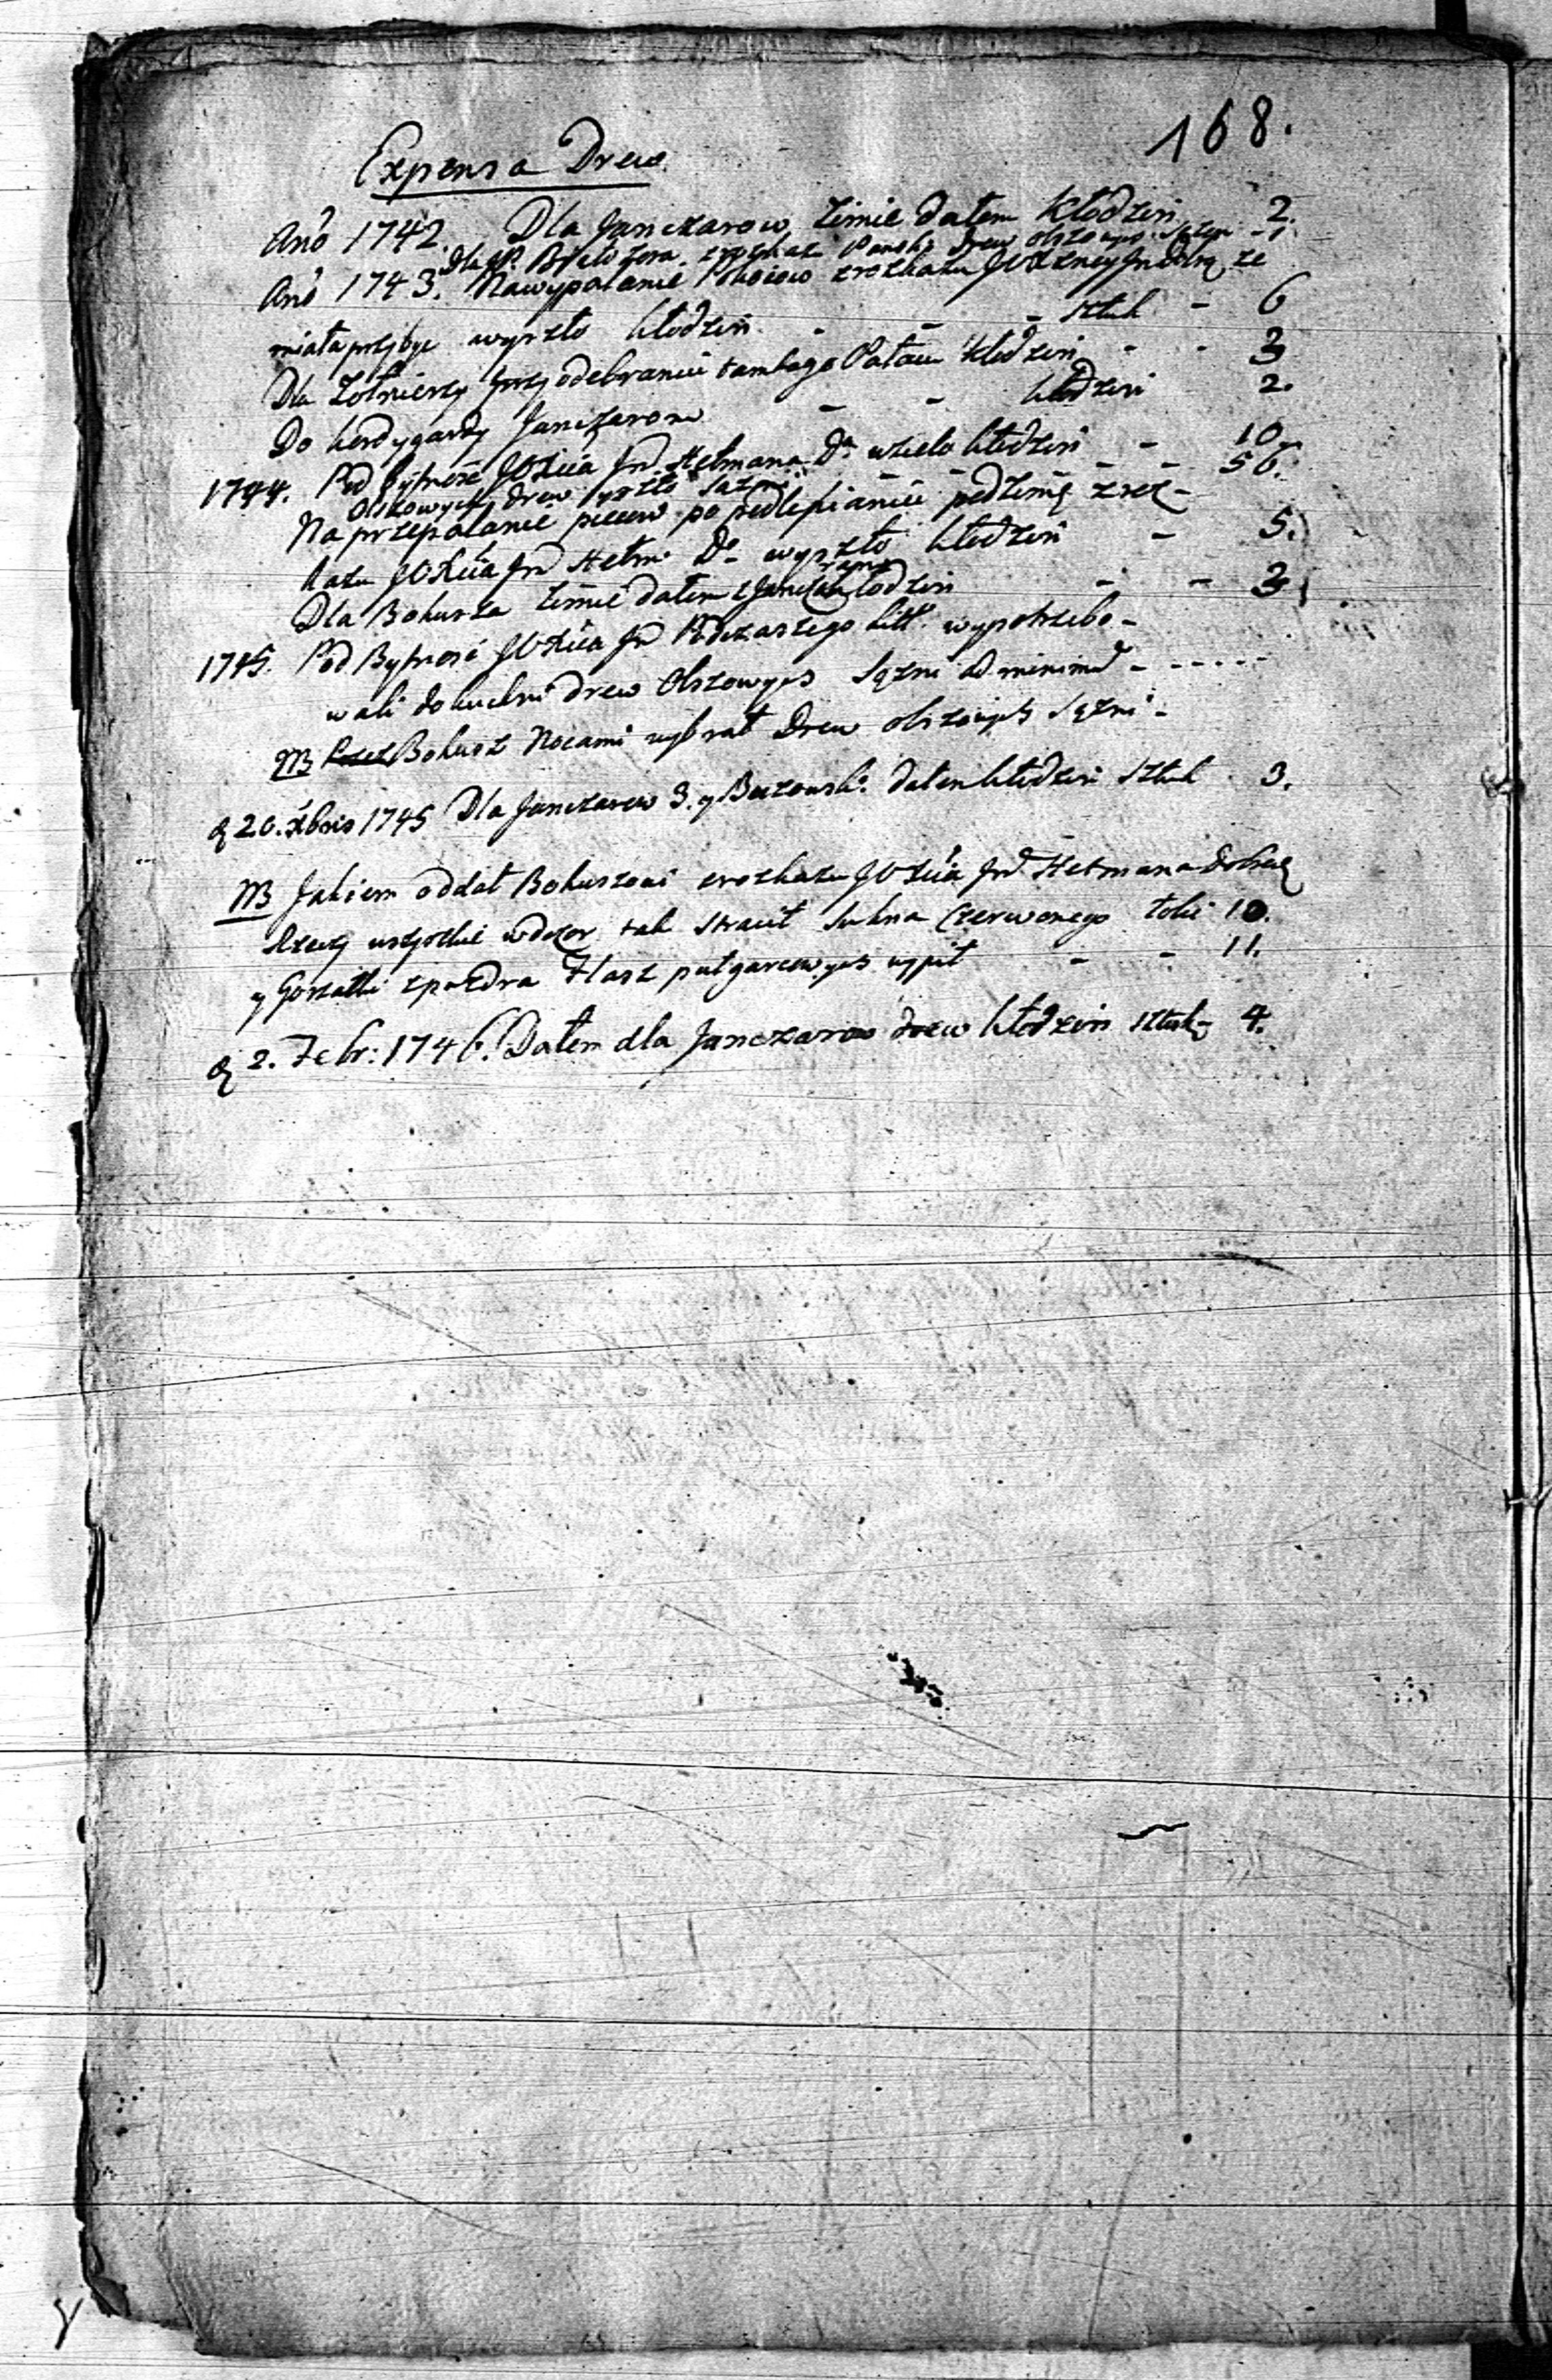 168.
Expensa Drew
Ano 1742. Dla Janczarow zimie dałem Kłodzin 2.
Dla JP. z Pańsk. Drew olszowych Sążen - 1.
Ano 1743. Na wypalanie Pokoiow z rozkazu że
miała przybyc wyszło kłodzin - - - sztuk - 6
Dla Zołnierzy przy odebraniu tamtego Pałacu kłodzin - - 3
Do kordygardy Janczarom - - kłodzin 2.
1744. Pod bytność JO Xcia Jmci Hetmana Do kłodzin - 10.
Olszowych drew wyszło sążni - - - - 56.
Na przepalanie piecow po podlepianiu pod zimę z roz-
kazu JO Xcia Jmci Hetm: Do wyszło kłodzin - 5.
Dla Bohusza zimie dałem z Janczarami kłodzin - - 3
1745. Pod Bytność JO Xcia Jmci Podczaszego Litt. wypotrzebo-
wali do kuchni drew Olszowych Sążni ad minimum - - - - - -
NB Bohusz Nocami wybrał Drew olszowych sążni -
d 20. Xbris 1745 Dla Janczarow 3. y dałem kłodzin Sztuk 3.
NB Jakiem oddał Bohuszowi z rozkazu JO Xcia Jmci Hetmana Dobrdz
Rzeczy wszystkie w dozor tak stracił Sukna Czerwonego łokci 10.
y Gorzałki z puzdra Flasz pułgarcowych wypił - - 11.
d 2. Febr: 1746. Dałem dla Janczarow drew kłodzin sztuk 4.